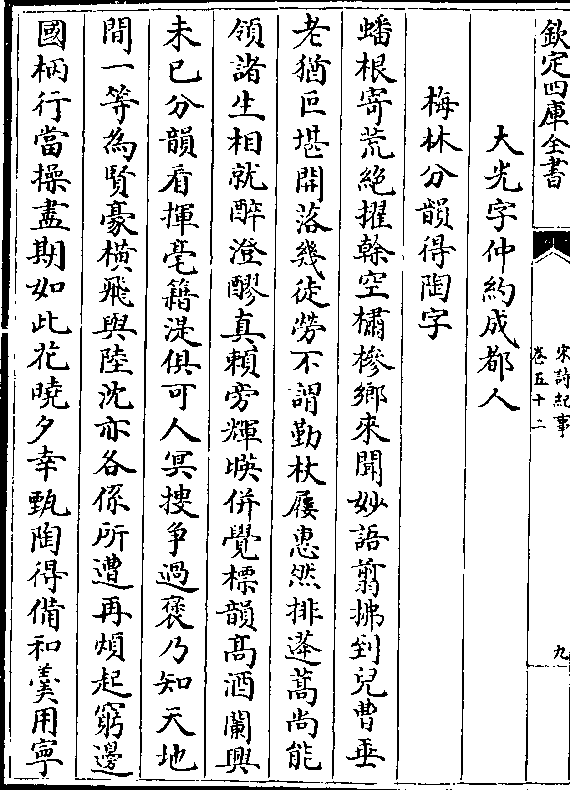 欽定四庫全書
宋詩紀事
卷五十二
九
大光字仲約成都人
梅林分韻得陶字
蟠根寄荒絶擢榦空櫹槮鄉來聞妙語翦拂到兒曹垂
老猶叵堪開落幾徒勞不謂勤杖屨恵然排蓬蒿尚能
領諸生相就醉澄醪真頼旁輝暎併覺標韻髙酒闌興
未已分韻看揮毫籍湜俱可人㝠搜争過褒乃知天地
間一等為賢豪橫飛與陸沈亦各係所遭再煩起窮邊
國柄行當操盡期如此花曉夕幸甄陶得備和羮用寧